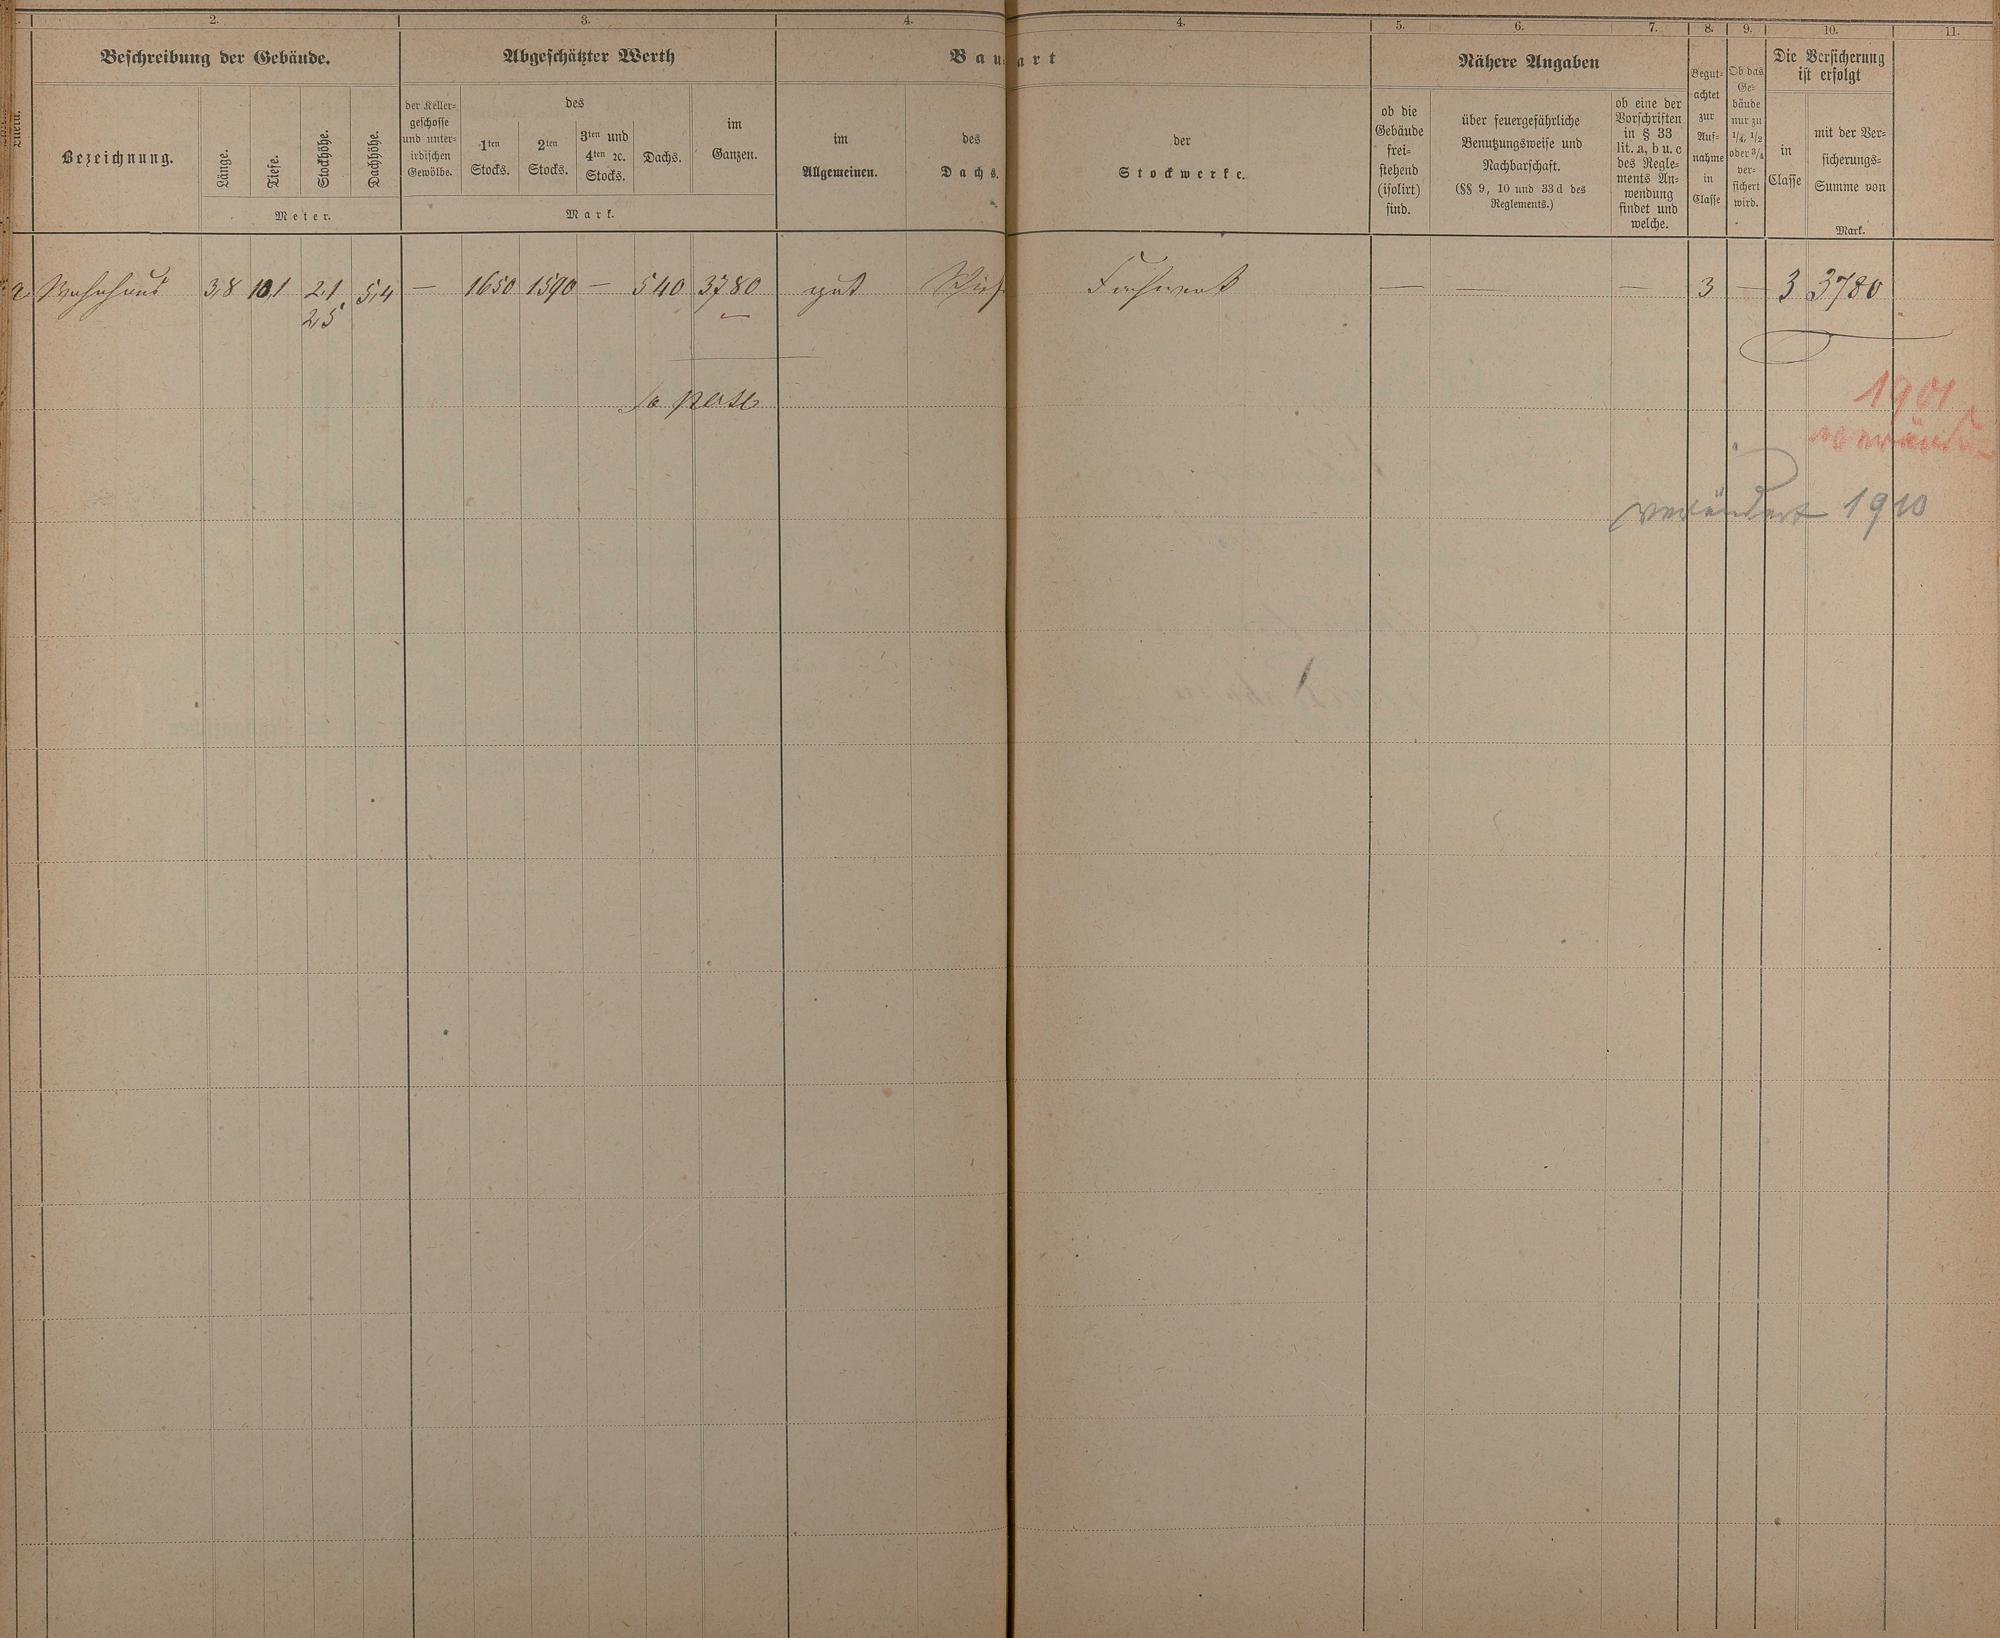 2. 3. 4. 4. 5. 6. 7. 8. 9. 10. 11.
Beschreibung der Gebäude. Abgeschätzter Werth Bauart Nähere Angaben Die Versicherung
ist erfolgt
Bezeichnung.
Länge.
Tiefe.
Stockhöhe.
Dachhöhe.
Meter.
der Keller-
geschosse
und unter-
irdischen
Gewölbe.
des
1ten
Stocks.
2ten
Stocks.
3ten und
4ten ꝛc.
Stocks.
Dachs.
im
Ganzen.
Mark.
im
Allgemeinen.
des
Dachs.
der
Stockwerke.
ob die
Gebäude
frei-
stehend
(isolirt)
sind.
über feuergefährliche
Benutzungsweise und
Nachbarschaft.
(§§ 9, 10 und 33 d des
Reglements.)
ob eine der
Vorschriften
in § 33
lit. a, b u. c
des Regle-
ments An-
wendung
findet und
welche.
Begut-
achtet
zur
Auf-
nahme
in
Classe
Ob das
Ge-
bäude
nur zu
1/4, 1/2
oder 3/4
ver-
sichert
wird.
in
Classe
mit der Ver-
sicherungs-
Summe von
Mark.
a. Wohnhaus 3,8 10,1 2,1 5,4 — 1650 1590 — 540 3780 gut Fachwerk — — — 3 — 3 3780
2,5
1901
verändert
verändert 1910